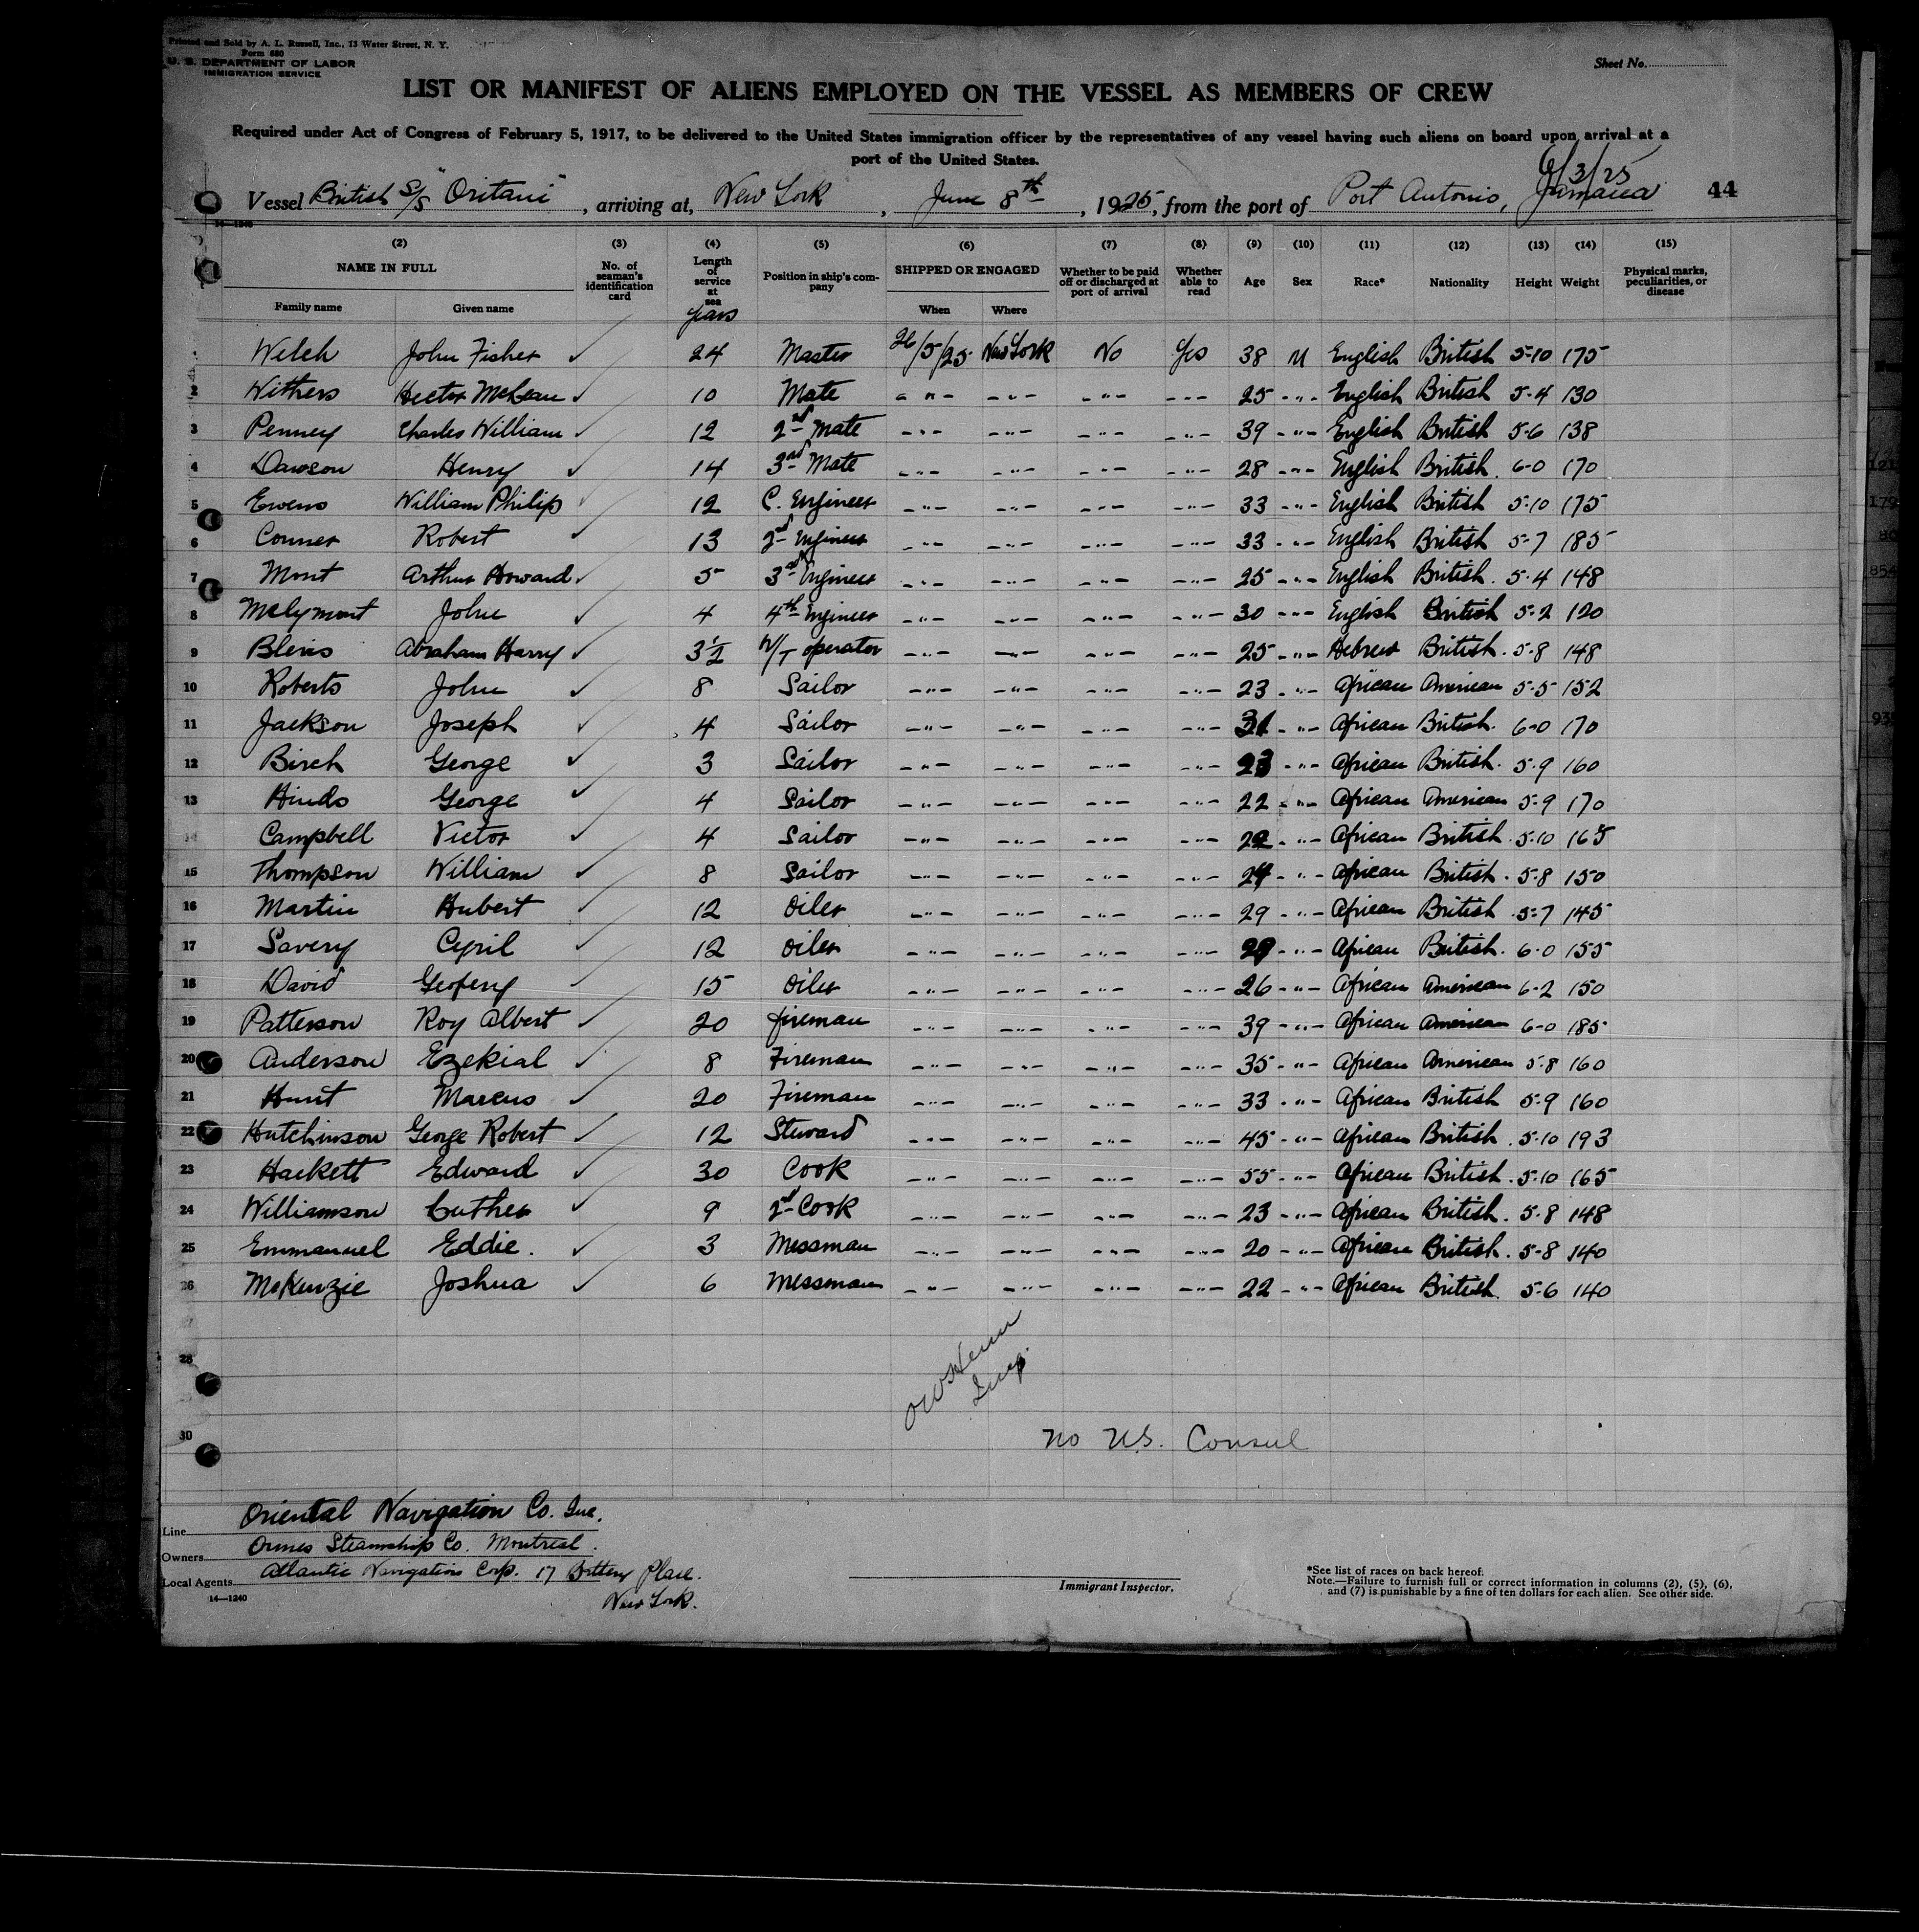 Printed and Sold by A. L. Russell, Inc., 13 Water Street, N. Y.
Form 680
U. S. DEPARTMENT OF LABOR
IMMIGRATION SERVICE
Sheet No.
LIST OR MANIFEST OF ALIENS EMPLOYED ON THE VESSEL AS MEMBERS OF CREW
Required under Act of Congress of February 5, 1917, to be delivered to the United States immigration officer by the representatives of any vessel having such aliens on board upon arrival at a
port of the United States.
6/3/25
Vessel British S/S "Oritani", arriving at, New York, June 8th, 1925, from the port of Port Antonio, Jamaica 44
14—1240
(2) (3) (4) (5) (6) (7) (8) (9) (10) (11) (12) (13) (14) (15)
NAME IN FULL No. of seaman's identification card Length of service at sea Position in ship's company SHIPPED OR ENGAGED Whether to be paid off or discharged at port of arrival Whether able to read Age Sex Race* Nationality Height Weight Physical marks, peculiarities, or disease
Family name Given name years When Where
1 Welch John Fisher ✓ 24 Master 26/5/25 New York No Yes 38 M English British 5-10 175
2 Withers Hector McLean ✓ 10 Mate -"- -"- -"- -"- 25 -"- English British 5-4 130
3 Penney Charles William ✓ 12 2nd Mate -"- -"- -"- -"- 39 -"- English British 5-6 138
4 Dawson Henry ✓ 14 3rd Mate -"- -"- -"- -"- 28 -"- English British 6-0 170
5 Ewens William Philip ✓ 12 C. Engineer -"- -"- -"- -"- 33 -"- English British 5-10 175
6 Conner Robert ✓ 13 2nd Engineer -"- -"- -"- -"- 33 -"- English British 5-7 185
7 Mont Arthur Howard ✓ 5 3rd Engineer -"- -"- -"- -"- 25 -"- English British. 5-4 148
8 McLymont John ✓ 4 4th Engineer -"- -"- -"- -"- 30 -"- English British 5-2 120
9 Blevis Abraham Harry ✓ 3½ W/T operator -"- -"- -"- -"- 25 -"- Hebrew British. 5-8 148
10 Roberts John ✓ 8 Sailor -"- -"- -"- -"- 23 -"- African American 5-5 152
11 Jackson Joseph ✓ 4 Sailor -"- -"- -"- -"- 31 -"- African British. 6-0 170
12 Birch George ✓ 3 Sailor -"- -"- -"- -"- 23 -"- African British. 5-9 160
13 Hinds George ✓ 4 Sailor -"- -"- -"- -"- 22 -"- African American 5-9 170
14 Campbell Victor ✓ 4 Sailor -"- -"- -"- -"- -"- African British. 5-10 165
15 Thompson William ✓ 8 Sailor -"- -"- -"- -"- 24 -"- African British. 5-8 150
16 Martin Hubert ✓ 12 Oiler -"- -"- -"- -"- 29 -"- African British 5-7 145
17 Savery Cyril ✓ 12 Oiler -"- -"- -"- -"- 29 -"- African British. 6-0 155
18 David Geofery ✓ 15 Oiler -"- -"- -"- -"- 26 -"- African American 6-2 150
19 Patterson Roy Albert ✓ 20 fireman -"- -"- -"- -"- 39 -"- African American 6-0 185
20 Anderson Ezekial ✓ 8 Fireman -"- -"- -"- -"- 35 -"- African American 5-8 160
21 Hunt Marcus ✓ 20 Fireman -"- -"- -"- -"- 33 -"- African British 5-9 160
22 Hutchinson George Robert ✓ 12 Steward -"- -"- -"- -"- 45 -"- African British. 5-10 193
23 Hackett Edward ✓ 30 Cook -"- -"- -"- -"- 55 -"- African British. 5-10 165
24 Williamson Luther ✓ 9 2nd Cook -"- -"- -"- -"- 23 -"- African British. 5-8 148
25 Emmanuel Eddie. ✓ 3 Messman -"- -"- -"- -"- 20 -"- African British. 5-8 140
26 McKenzie Joshua ✓ 6 Messman -"- -"- -"- -"- 22 -"- African British. 5-6 140
27
28
Insp.
30
No U.S. Consul
Line Oriental Navigation Co. Inc.
Owners Ormes Steamship Co. Montreal.
Local Agents Atlantic Navigation Corp. 17 Battery Place.
New York.
14—1240
Immigrant Inspector.
*See list of races on back hereof.
Note.—Failure to furnish full or correct information in columns (2), (5), (6),
and (7) is punishable by a fine of ten dollars for each alien. See other side.